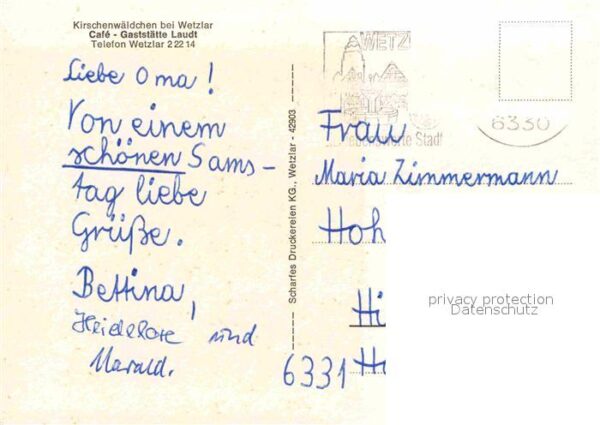 Kirschenwäldchen bei Wetzlar
Café - Gaststätte Laudt
Telefon Wetzlar 2 22 14
Liebe Oma!
Von einem
schönen Sams-
tag liebe
Grüße.
Bettina,
Heidelore und
Harald.
Scharfes Druckereien KG., Wetzlar - 42903
WETZ
6330
Stadt
Frau
Maria Zimmermann
Hoh
Hi
6331 H
privacy protection
Datenschutz